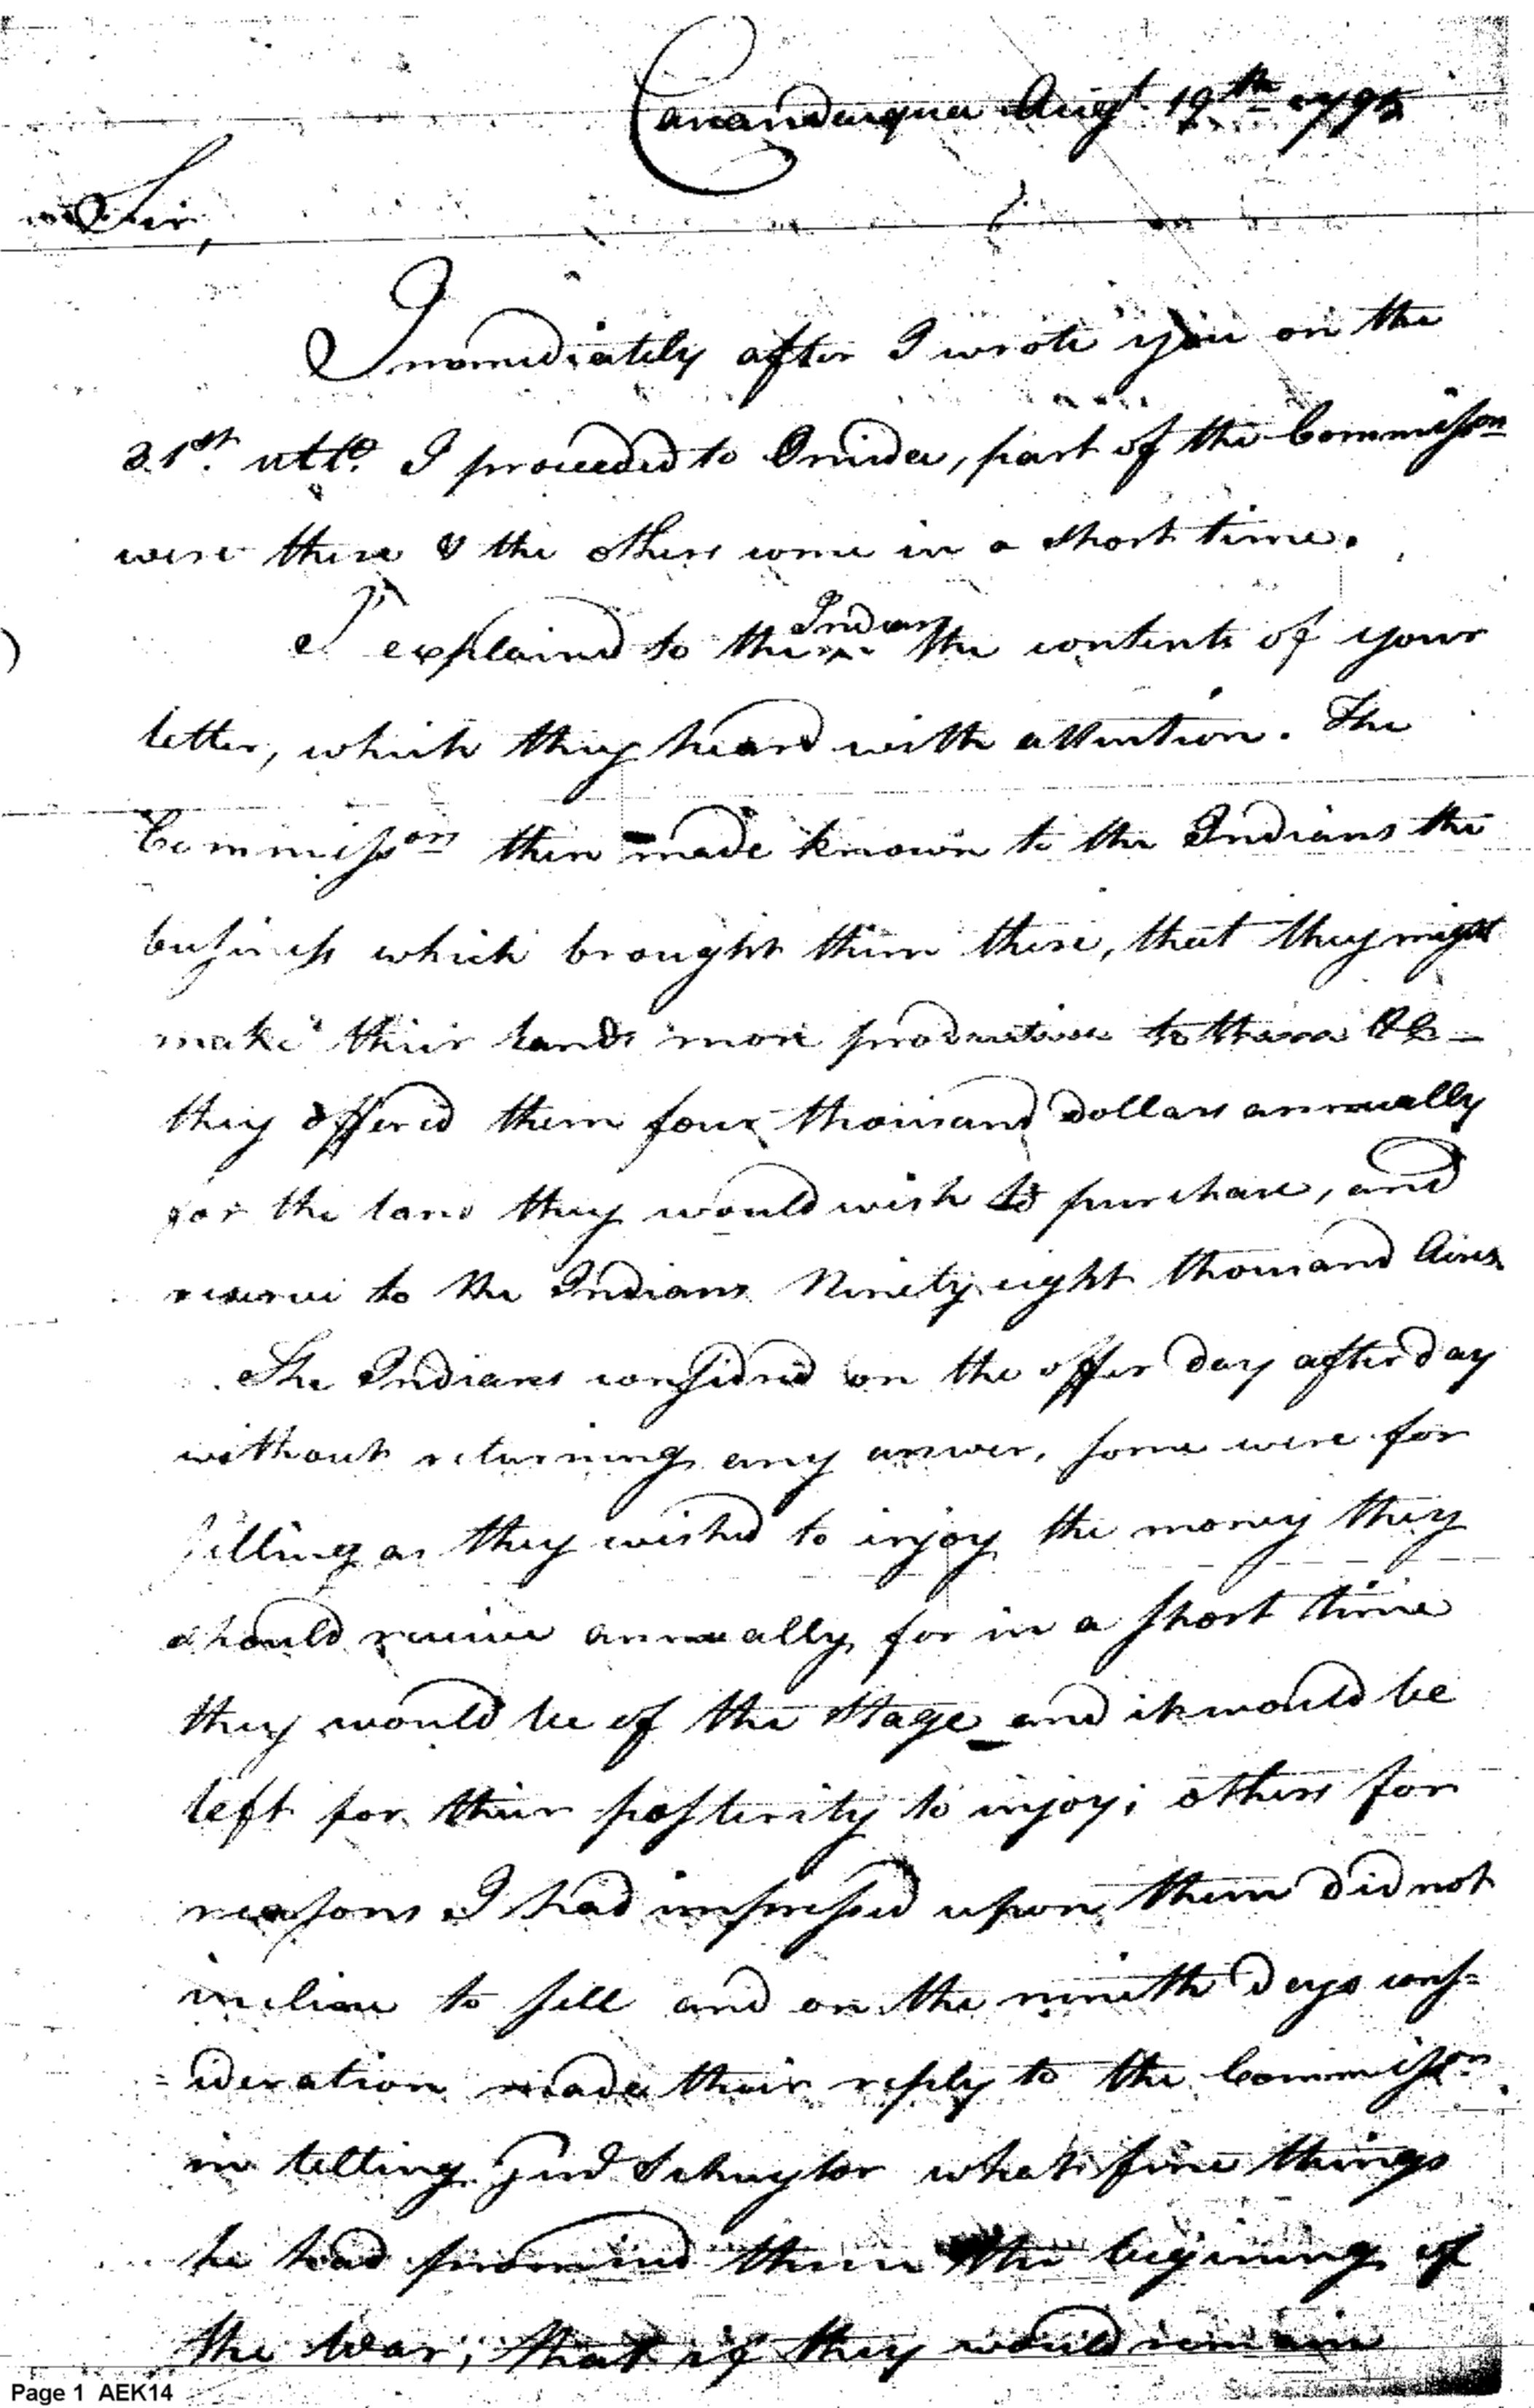 Canandaigua Augt. 19th 1795
Sir,
Immediately after I wrote you on the
31st. ultо. I proceeded to Onida, part of the Commissrs
were there & the others come in a short time.
I explained to the Indians the contents of your
letter, which they heard with attention. The
Commissrs then made known to the Indians the
business which brought them there, that they might
make their lands more productive to them &c—
they offered them four thousand Dollars annually
for the land they would wish to purchase, and
reserve to the Indians Ninety eight thousand Acres
The Indians considred on the offer day after day
without returning any answer, some were for
selling as they wished to injoy the money they
should receive annually for in a short time
they would be of the Stage and it would be
left for their posterity to injoy; others for
reasons I had impressed upon them did not
incline to sell and on the nineth days cons=
=ideration made their reply to the Commissrs
in telling Genl Schuyler what fine things
he had promised them the begining of
the War; that if they would remain
Page 1 AEK14